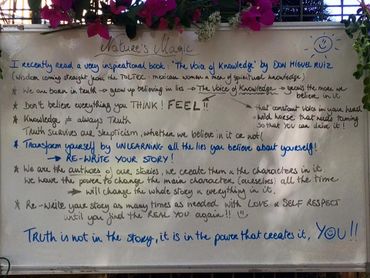 Nature's Magic
I recently read a very inspirational book. 'The Voice of Knowledge' by DON MIGUEL RUIZ
(Wisdom coming straight from the TOLTEC mexican women & men of spiritual knowledge)
* We are born in truth → grow up believing in lies → The Voice of Knowledge → grows the more we believe in it.
* Don't believe everything you THINK! FEEL!!
that constant voice in your head
wild horse that needs taming
so that YOU can drive it!
* Knowledge ≠ always Truth
Truth survives our skepticism, whether we believe in it or not!
* Transform yourself by UNLEARNING all the lies you believe about yourself!
→ RE-WRITE YOUR STORY!
* We are the authors of our stories, we create them & the characters in it.
We have the power to change the main character (ourselves) all the time
→ will change the whole story & everything in it.
* Re-Write your story as many times as needed with LOVE & SELF RESPECT
until you find the REAL YOU again!!
TRUTH is not in the story, it is in the power that creates it, YOU!!